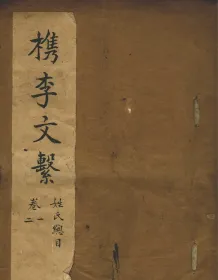 檇李文繫
姓氏總目
卷一
二